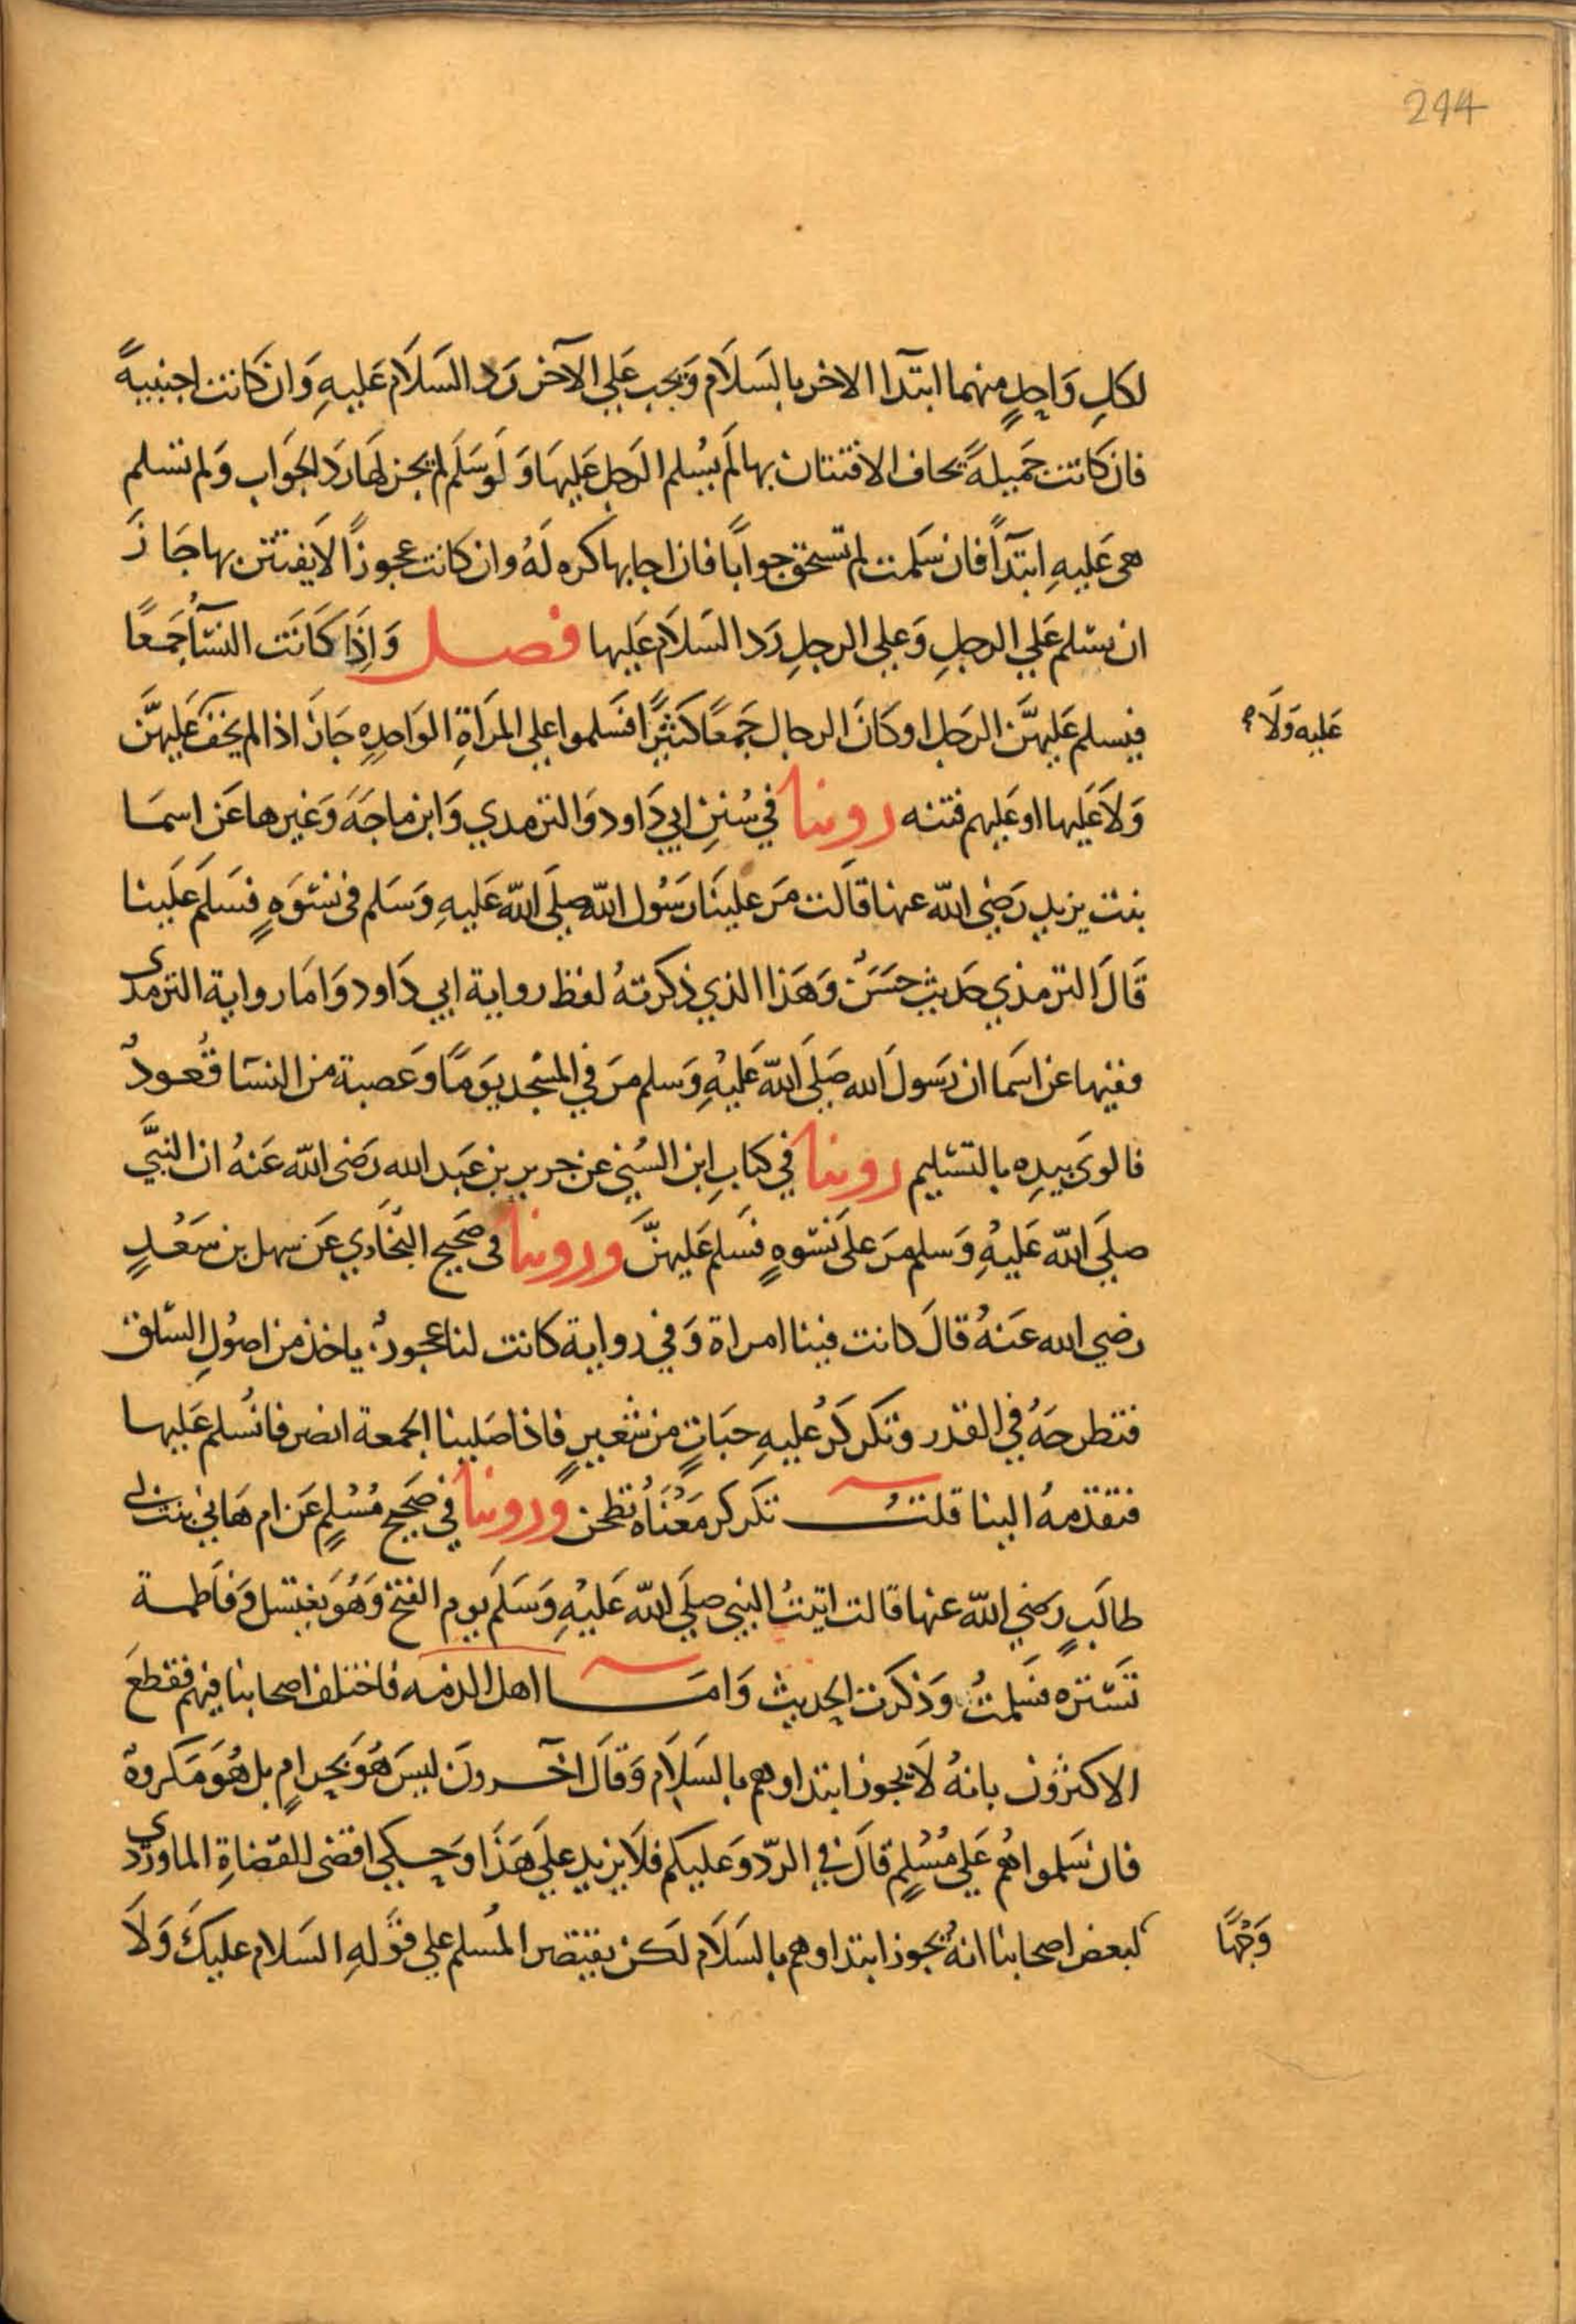 244
لكلِ وَاحدٍ منهما ابتدَآ الاخر بالسَلاَم وَيجب عَلي الآخر رَد السَلاَم عَليهِ وَان كَانت اجنبيةً
فان كَانت جَميلةً يخاف الافتتان بها لَم يسُلم الرَجل عَليهَا وَلَوسَلَم لم يجز لهَا رَد الجوَاب وَلم تسلم
هى عَليهِ ابتدَآً فان سَلمت لم تستحق جوابًا فان اجابها كره لَهُ وان كانت عجوزًا لا يفتتن بها جَازَ
ان تسَلم عَلي الرجلِ وَعلي الرجلِ رَد السَلاَم عَليها فصل وَاِذَا كَانَت النسَآُ جَمعًا
فيسلم عَليهنَّ الرجَل او كَانَ الرجال جَمعًا كَثيرًا فسَلموا علي المرَاةِ الوَاحدِهِ جَازَ اذا لم يخَف عَليهنَّ
عَليه وَلاَ
وَلاَ عَليها او عَليهم فتنه روينا في سُننِ ابي دَاود وَالترمدي وَابن ماجَهَ وَغيرها عَن اسمَا
بنت يزيد رَضِي الله عنها قالَت مَر علينَا رَسُول الله صلَي الله عَليهِ وَسَلم فى نسوَهٍ فسَلَم عَلينا
قَالَ الترمذي حَديث حسَنٌ وَهَذا الذي ذكرتهُ لفظ رواية ابي دَاود وَامَا رواية الترمدى
ففيها عن اسَما ان رَسولَ الله صَلَي الله عَليْهِ وَسلم مرَ في المسْجد يوَمًا وَعصبة من النسَا قُعودٌ
فالوىَ بيدِه بالتسَليم روينا في كتابِ ابن السُنِي عن جرير بن عَبد الله رَضى الله عَنهُ ان النبيَّ
صلَي الله عَليْهِ وَسلم مَر علىَ نسَوهٍ فسَلم عَليهنَّ وروينا فى صَحيح البخَاري عَن سهل بن سَعْدٍ
رضي الله عَنهُ قالَ كانت فينا امراة وَفي رواية كانت لنا عجوزٌ ياخذ من اصُولِ السَلق
فتطرحَهُ في القدر وتكَركَرُ عليهِ حبَاتٍ من شعيرٍ فاذا صَلينا الجمعة انصرفنا نُسلم عَليها
فتقدمهُ الينا قلتُ تكَركر مَعْنَاهُ تطحن وَروينا في صَحيح مُسْلمٍ عَن ام هَاني بنت ابي
طالَبٍ رَضي الله عنها قالت اتيتُ النبي صلَي الله عَليْهِ وَسَلَم يوم الفتح وَهُوَ يغتسَل وَفاطمة
تَستره فسَلمتُ وَذكرت الحديث وَامَا اهل الذمه فاختلف اصحابنا فيهم فقطعَ
الاكثرون بانهُ لاَ يجوز ابتداوهم بالسَلاَم وَقَالَ آخرونَ ليسَ هُوَ بحرامٍ بل هُوَ مَكروهٌ
فان سَلموا هُم عَلي مُسْلمٍ قالَ في الردّ وَعليكم فلاَ يزيد علَي هَذَا وَحكي اقضى القضَاةِ الماوردى
لبعض اصحابنا انهُ يجوز ابتداوهم بالسَلاَم لَكن يقتصر المُسلم علي قوَلهِ السَلام عليكَ وَلاَ
وَجْهًا